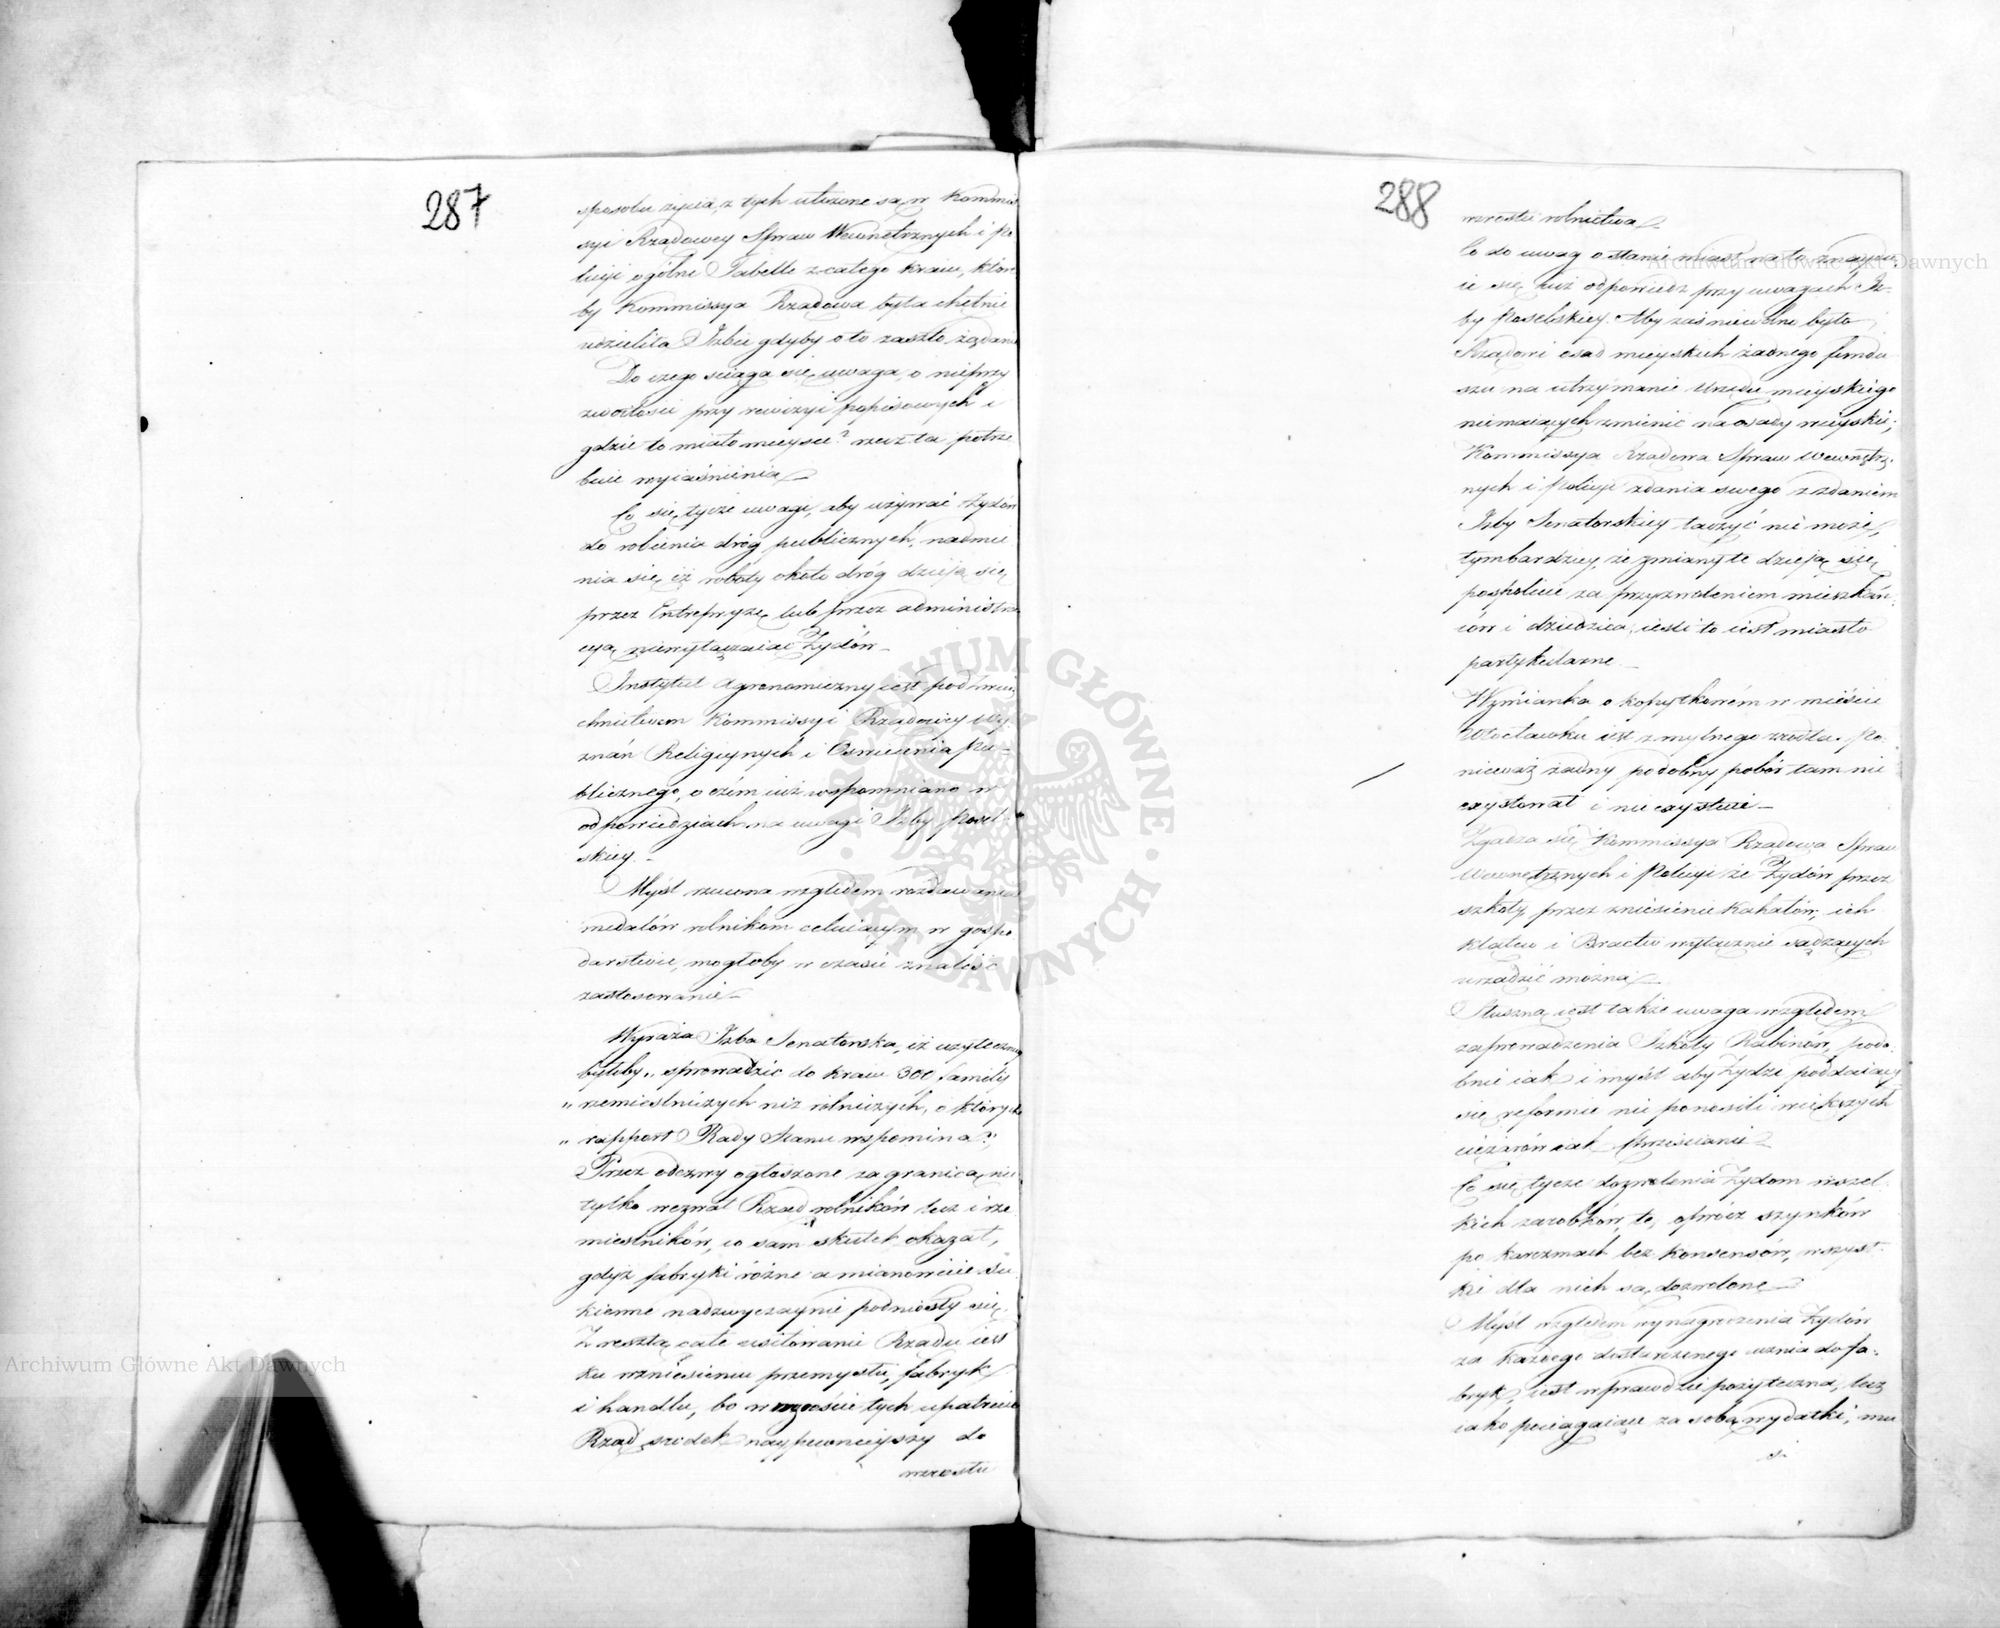 287
sposobu życia, z tych utworzone są w Kommis
syi Rządowey Spraw Wewnętrznych i Po
licyi ogólne Tabelle z całego kraiu, któr
by Kommissya Rządowa była chętnie
udzieliła Izbie gdyby o to zaszło żądani
Do czego sciąga się uwaga, o nieprzy
zwoitości przy rewizyi popisowych i
gdzie to miało mieysce? rzecz ta potrze
buie wyiaśnienia
Co się tycze uwagi, aby używać Żydów
do robienia dróg publicznych, nadmie
nia się iż roboty około dróg dzieią się
przez Entrepryzę lub przez administra
cyą niewyłączaiąc Żydów
Instytut Agronomiczny iest pod zwier
chnictwem Kommissyi Rządowey Wy
znań Religiynych i Oswiecenia Pu
blicznego, o czém iuż wspomniano w
odpowiedziach na uwagi Izby Posel
skiey.
Myśl rzucona względem rozdawania
medalów rolnikom celuiącym w gospo
darstwie, mogłaby w czasie znaleść
zastosowanie
Wyraża Izba Senatorska, iż użyteczniey
byłoby „sprowadzic do kraiu 300 familij
„ rzemieslniczych niz rolniczych, o których
„ rapport Rady Stanu wspomina"
Przez odezwy ogłoszone za granicą nie
tylko wezwał Rząd rolników lecz i rze
miesników, co sam skutek okazał,
gdyż fabryki różne a mianowicie Su
kienne nadzwyczaynie podniosły się.
Z resztą całe usiłowanie Rządu iest
ku wzniesieniu przemysłu, fabryk
i handlu, bo w wzroście tych upatruie
Rząd srodek naypewnieyszy do
wzrostu
288
wzrostu rolnictwa
Co do uwag o stanie miast na to znaydu
ie się iuż odpowiedz przy uwagach Iz-
by Poselskiey. Aby zaś niewolno było
Rządowi osad mieyskich żadnego fundu
szu na utrzymanie Urzędu mieyskiego
niemaiących zmienić na osady wieyskie;
Kommissya Rządowa Spraw Wewnętrz-
nych i Policyi zdania swego z zdaniem
Izby Senatorskiey łączyć nie może,
tymbardziey, że zmiany te dzieią się
pospolicie za przyzwoleniem mieszkań
ców i dziedzica, iesli to iest miasto
partykularne
Wzmianka o kopytkowém w mieście
Włocławku iest z mylnego zrodła. Po
nieważ żadny podobny pobór tam nie
exystował i nie exystuie
Zgadza się Kommissya Rządowa Spraw
Wewnętrznych i Policyi że Żydów przez
szkoły przez zniesienie Kahałów, ich
klątew i Bractw wyłącznie sądzących
urządzić można
Słuszną iest także uwaga względem
zaprowadzenia Szkoły Rabinów, podo
bnie iak i myśl aby Żydzi poddaiący
się reformie nie ponosili większych
ciężarów iak Chrześcianie
Co się tycze dozwolenia Żydom wszel
kich zarobków, te, oprócz szynków
po karczmach bez konsensów, wszyst
kie dla nich są dozwolone
Myśl względem wynagrodzenia Żydów
za każdego dostarczonego ucznia do fa-
bryk, iest wprawdzie pożyteczna, lecz
iako pociągaiąca za sobą wydatki, mu
si
Archiwum Główne Akt Dawnych
Archiwum Główne Akt Dawnych
ARCHIWUM GŁÓWNE AKT DAWNYCH